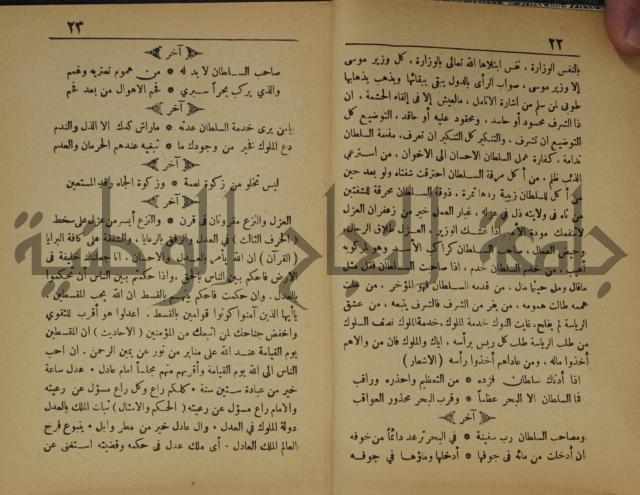 ٢٢
بالنفس الوزارة . نفس ابتلاها الله تعالى بالوزارة . كل وزير موسى
إلا وزير موسى . صواب الرأى بالدول يبقى ببقائها ويذهب بذهابها
طوبى لمن سلم من اشارة الانامل . مالعيش إلا فى إلقاء الحشمة . ان
ذا الشرف محسود أو حاسد . ومحقود عليه أو حاقد . التوضيع كل
التوضيع ان تشرف . والتنكير كل التنكير ان تعرف . مقدمة السلطان
ندامة . كفارة عمل السلطان الاحسان الى الاخوان . من استرعى
الذئب ظلم . من أكل مرقة السلطان احترقت شفتاه ولو بعد حين
من أكل للسلطان زبيبة ردها تمرة . ذوقة السلطان محرقة للشفتين
من تاه فى ولايته ذل فى عزله . غبار العمل خير من زعفران العزل
لا تنفعك مودة الامير اذا غشك الوزير . العزل طلاق الرجال
وحيض العمال . صاحب السلطان كراكب الأسد وهو لمركوبه
أهيب . من خدم السلطان خدم . اذا صاحبت السلطان فقل مثل
ماقال ومل حيثما مال . من قدمه السلطان فهو المؤخر . من علت
همته طالت همومه . من يفر من الشرف فالشرف يتبعه . من عشق
الرياسة لم يفلح . غايت النوك خدمة الملوك . خدمة الملوك نصف السلوك
من طلب الرياسة طلب كل ريس برأسه . اياك والملوك فان من والاهم
أخذوا ماله . ومن عاداهم أخذوا رأسه ( الاشعار )
اذا أدناك سلطان فزده * من التعظيم واحذره وراقب
فما السلطان الا البحر عظماً * وقرب البحر محذور العواقب
آخر
ومصاحب السلطان رب سفينة * فى البحر ترعد دائماً من خوفه
ان أدخلت من مائه فى جوفها * أدخلها وماؤها فى جوفه
٢٣
آخر
صاحب السلطان لا بد له * من هموم تعتريه وغمم
والذى يركب بحراً سيرى * قحم الاهوال من بعد قحم
آخر
يامن يرى خدمة السلطان عدته * ماراش كدك الا الذل والندم
دع الملوك فخير من وجودك ما * تبقيه عندهم الحرمان والعدم
آخر
ليس تخلو من زكوة نعمة * وزكوة الجاه رفد المستعين
آخر
العزل والنزع مقرونان فى قرن * والنزع أيسر من عزل على سخط
( الحرف الثالث ) فى العدل والرفق بالرعايا . والشفقة على كافة البرايا
( القرآن ) ان الله يأمر بالعدل والاحسان . انا جعلناك خليفة فى
الارض فاحكم بين الناس بالحق . واذا حكمتم بين الناس ان تحكموا
بالعدل . وان حكمت فاحكم بينهم بالقسط ان الله يحب المقسطين .
ياأيها الذين آمنوا كونوا قوامين بالقسط . اعدلوا هو أقرب للتقوى
واخفض جناحك لمن اتبعك من المؤمنين ( الاحاديث ) ان المقسطين
يوم القيامة عند الله على منابر من نور عن يمين الرحمن . ان احب
الناس الى الله يوم القيامة وأقربهم منهم مجلساً امام عادل . عدل ساعة
خير من عبادة ستين سنة . كلكم راع وكل راع مسؤل عن رعيته
والامام راع مسؤل عن رعيته ( الحكم والامثال ) ثبات الملك بالعدل
دولة الملوك فى العدل . وال عادل خير من مطر وابل . ينبوع فرح
العالم الملك العادل . أى ملك عدل فى حكمه وقضيته استغنى عن
جامعة النجاح الوطنية